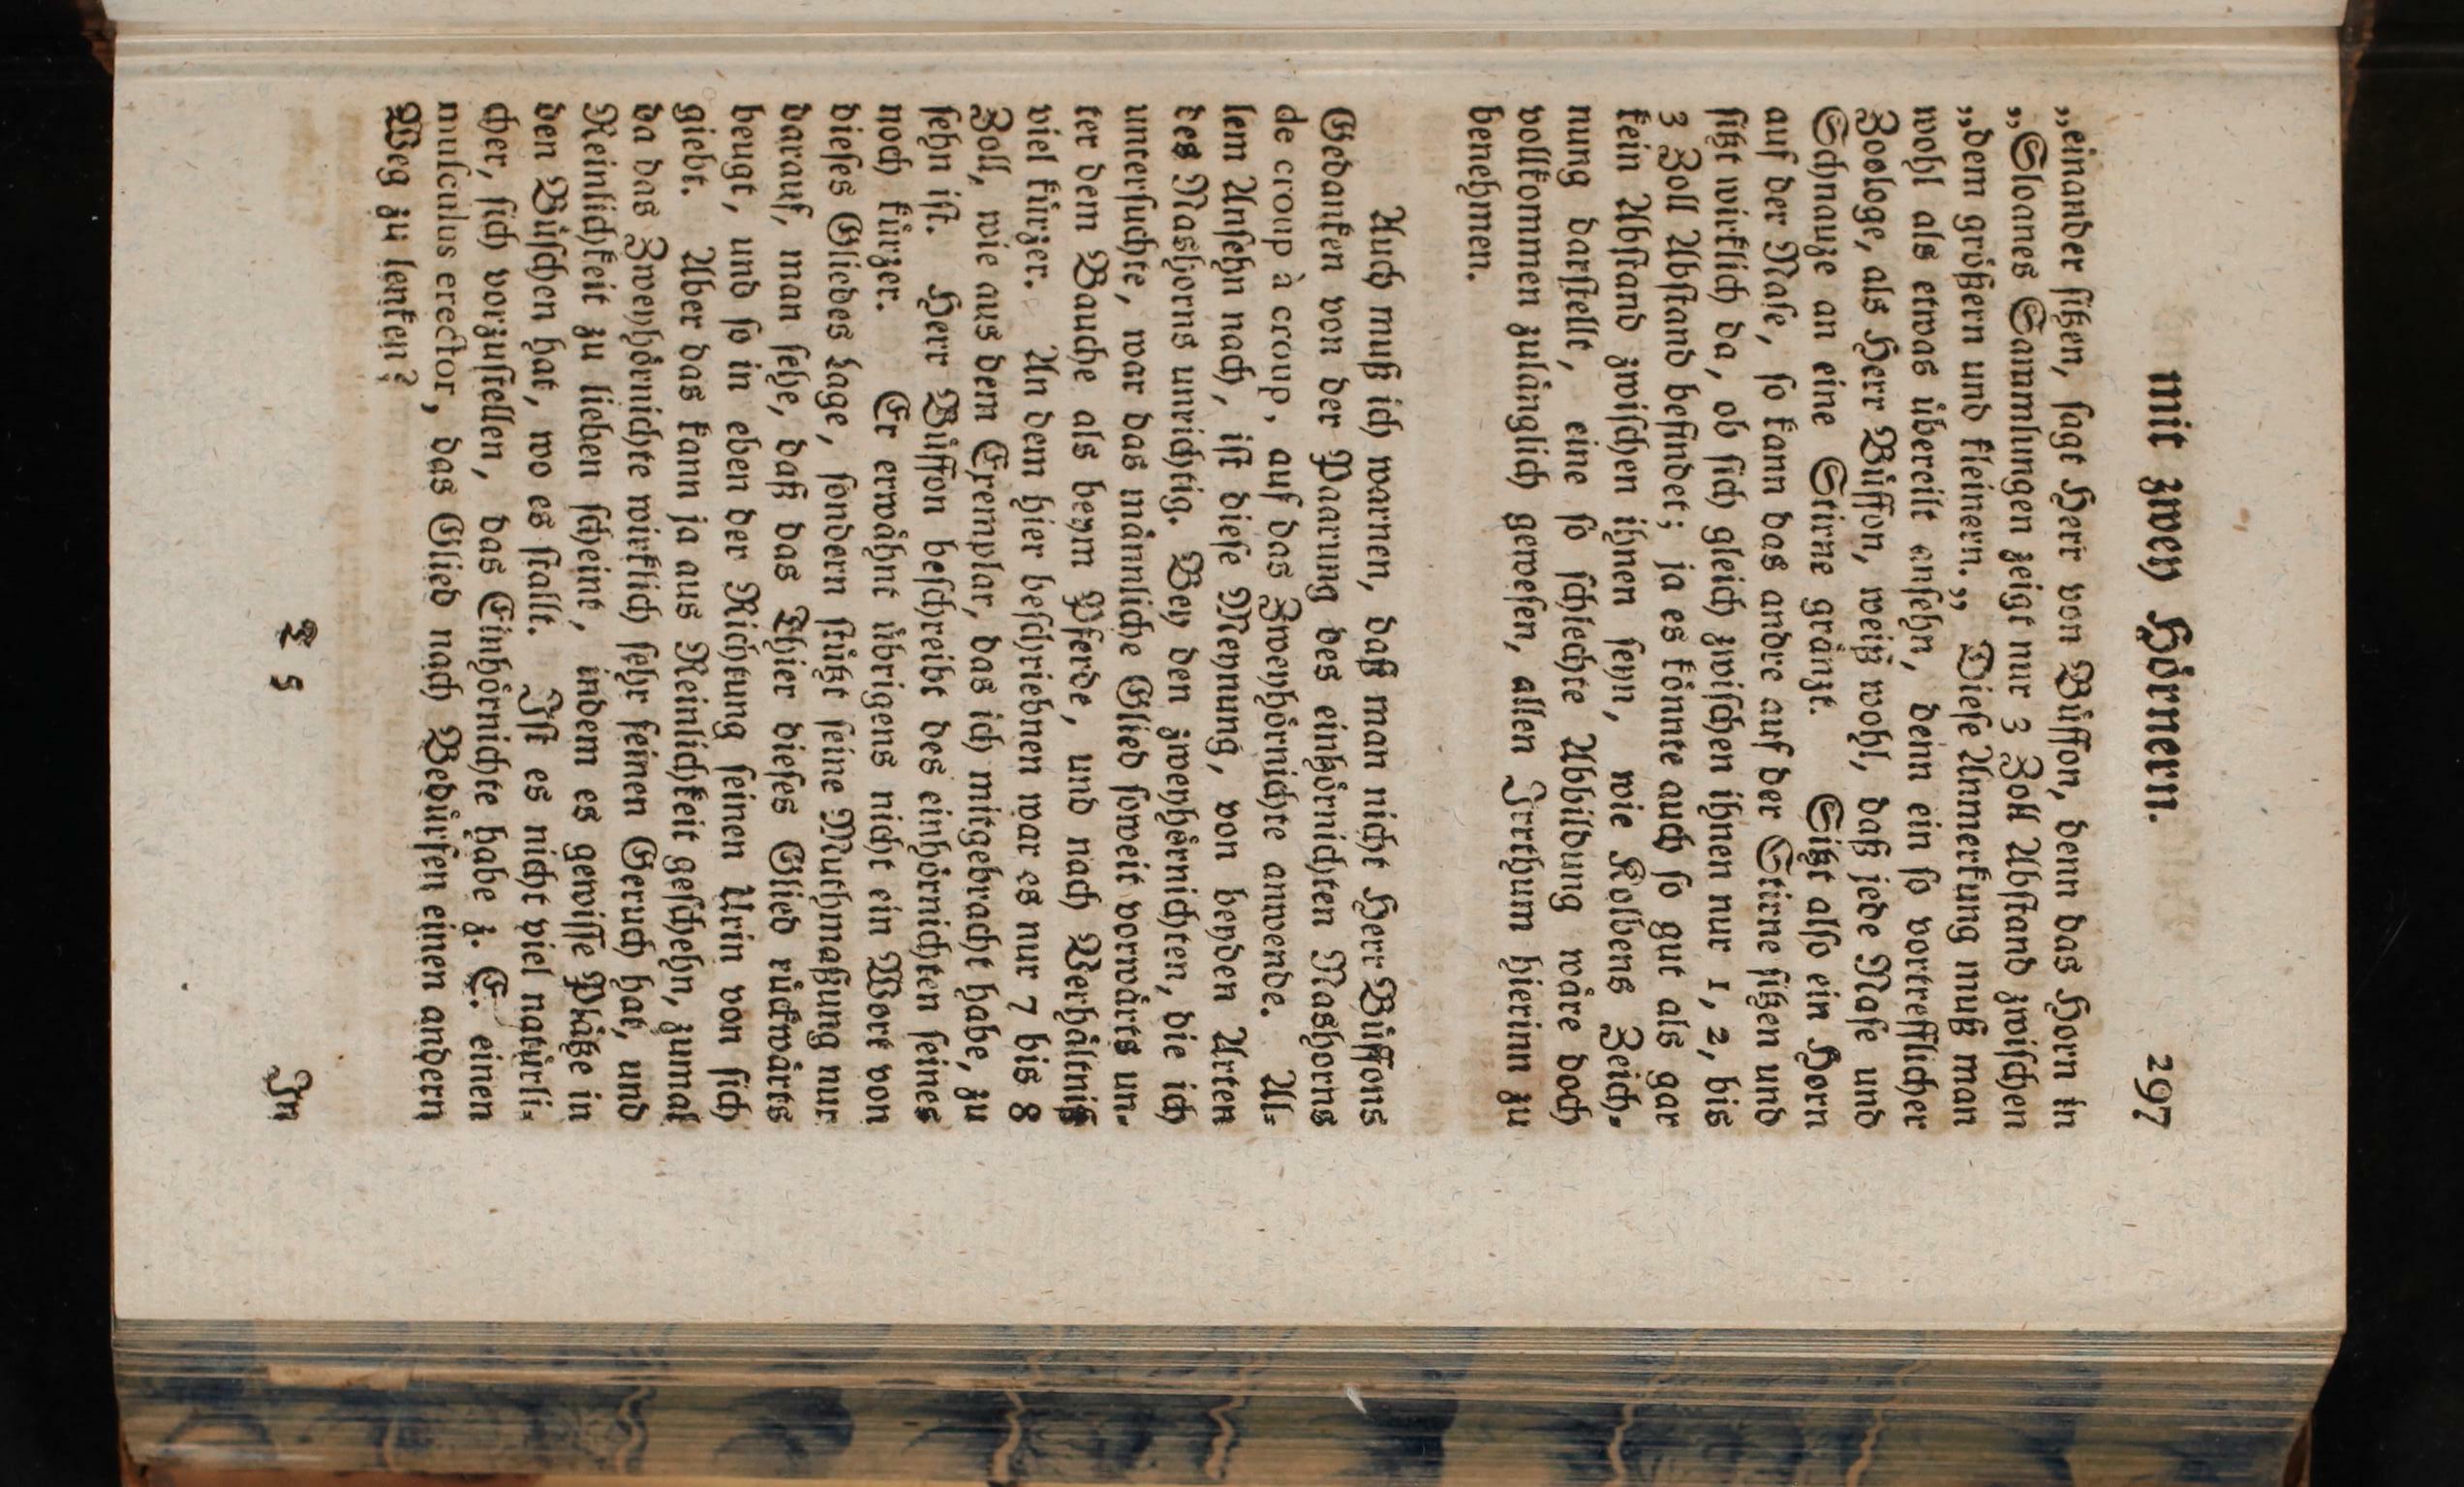 mit zwey Hörnern. 297
„einander sitzen, sagt Herr von Büffon, denn das Horn in
„Sloanes Sammlungen zeigt nur 3 Zoll Abstand zwischen
„dem größern und kleinern.„ Diese Anmerkung muß man
wohl als etwas übereilt ansehn, denn ein so vortrefflicher
Zoologe, als Herr Büffon, weiß wohl, daß jede Nase und
Schnauze an eine Stirne gränzt. Sitzt also ein Horn
auf der Nase, so kann das andre auf der Stirne sitzen und
sitzt wirklich da, ob sich gleich zwischen ihnen nur 1, 2, bis
3 Zoll Abstand befindet; ja es könnte auch so gut als gar
kein Abstand zwischen ihnen seyn, wie Kolbens Zeich-
nung darstellt, eine so schlechte Abbildung wäre doch
vollkommen zulänglich gewesen, allen Irrthum hierinn zu
benehmen.
Auch muß ich warnen, daß man nicht Herr Büffons
Gedanken von der Paarung des einhörnichten Nashorns
de croup à croup, auf das Zweyhörnichte anwende. Al-
lem Ansehn nach, ist diese Meynung, von beyden Arten
des Nashorns unrichtig. Bey den zweyhörnichten, die ich
untersuchte, war das männliche Glied soweit vorwärts un-
ter dem Bauche als beym Pferde, und nach Verhältniß
viel kürzer. An dem hier beschriebnen war es nur 7 bis 8
Zoll, wie aus dem Exemplar, das ich mitgebracht habe, zu
sehn ist. Herr Büffon beschreibt des einhörnichten seines
noch kürzer. Er erwähnt übrigens nicht ein Wort von
dieses Gliedes Lage, sondern stützt seine Muthmaßung nur
darauf, man sehe, daß das Thier dieses Glied rückwärts
beugt, und so in eben der Richtung seinen Urin von sich
giebt. Aber das kann ja aus Reinlichkeit geschehn, zumal
da das Zweyhörnichte wirklich sehr feinen Geruch hat, und
Reinlichkeit zu lieben scheint, indem es gewisse Plätze in
den Büschen hat, wo es stallt. Ist es nicht viel natürli-
cher, sich vorzustellen, das Einhörnichte habe z. E. einen
musculus erector, das Glied nach Bedürfen einen andern
Weg zu lenken?
T 5 In